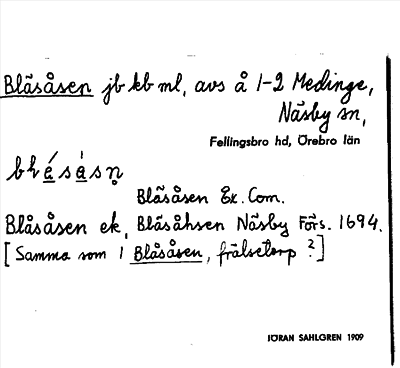 Blåsåsen jb kb ml, avs å 1-2 Medinge,
Näsby sn,
Fellingsbro hd, Örebro län
Blåsåsen Äk. Com.
Blåsåsen ek, Blåsåhsen Näsby Förs. 1694.
[Samma som 1 Blåsåsen, frälsetorp ?]
JÖRAN SAHLGREN 1909